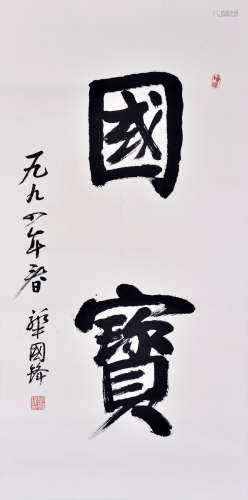 國寶
一九九八年春
華國鋒